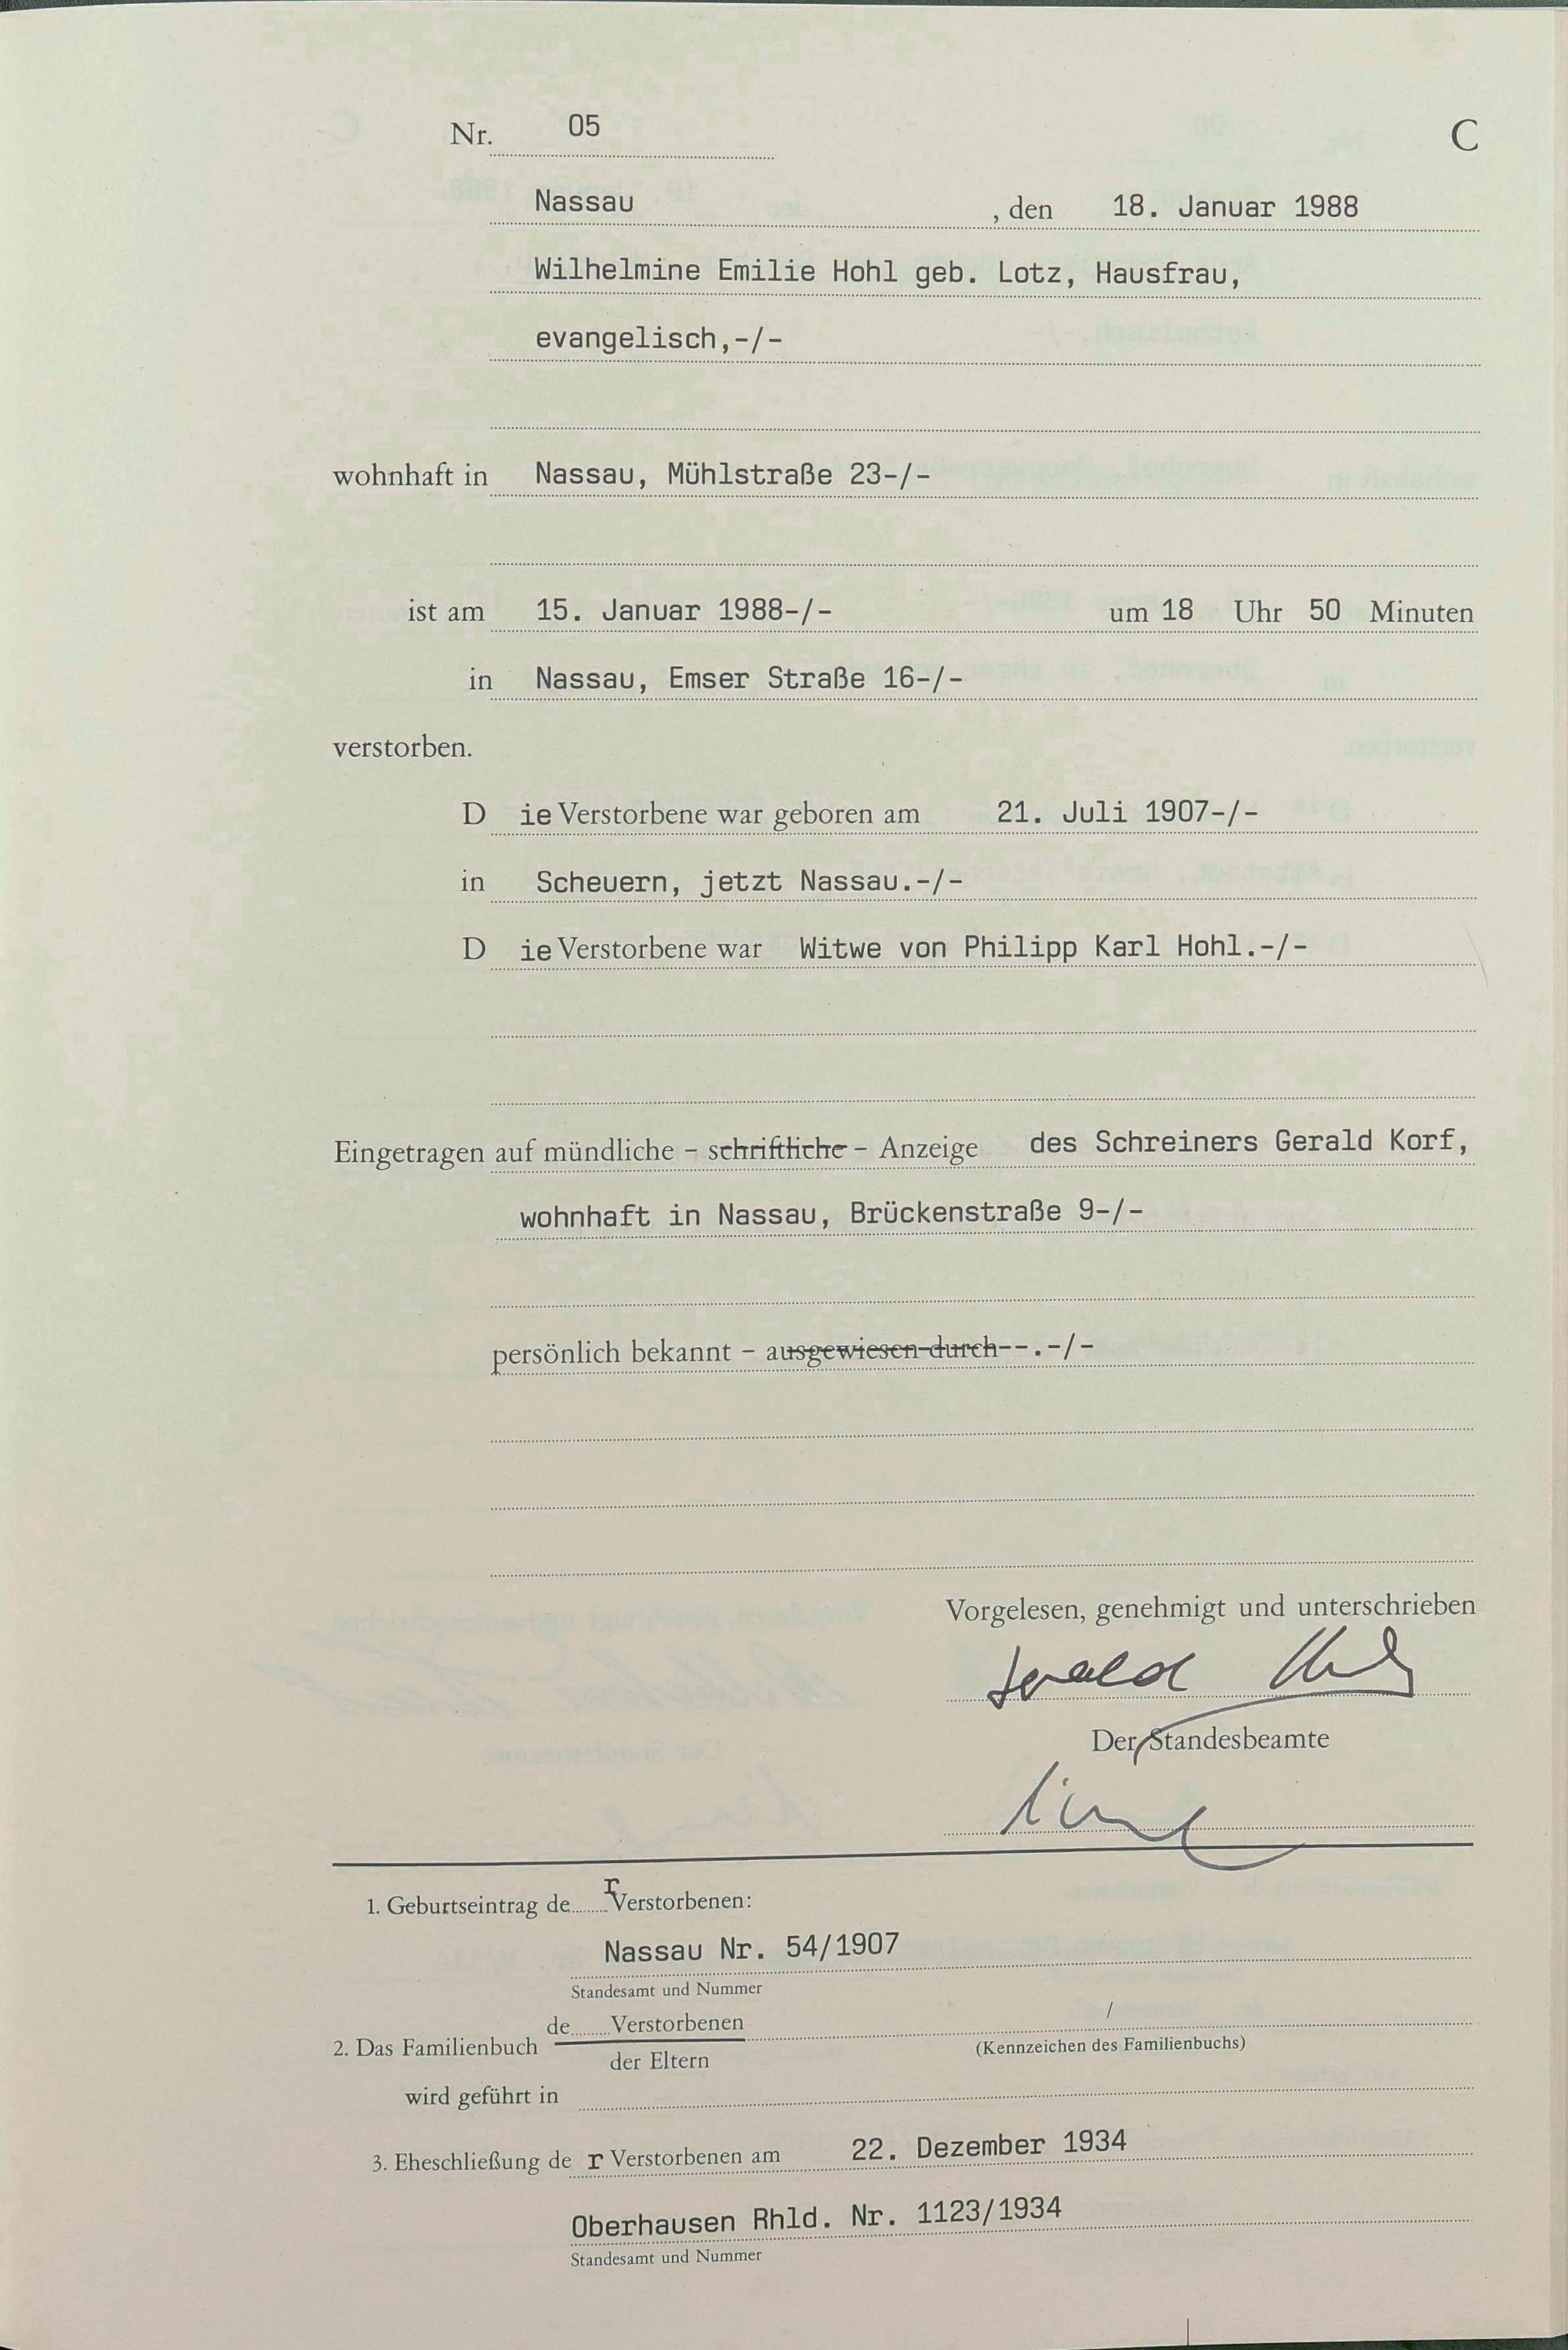 Nr. 05 C
Nassau , den 18. Januar 1988
Wilhelmine Emilie Hohl geb. Lotz, Hausfrau,
evangelisch,-/-
wohnhaft in Nassau, Mühlstraße 23-/-
ist am 15. Januar 1988-/- um 18 Uhr 50 Minuten
in Nassau, Emser Straße 16-/-
verstorben.
D ie Verstorbene war geboren am 21. Juli 1907-/-
in Scheuern, jetzt Nassau.-/-
D ie Verstorbene war Witwe von Philipp Karl Hohl.-/-
Eingetragen auf mündliche - schriftliche - Anzeige des Schreiners Gerald Korf,
wohnhaft in Nassau, Brückenstraße 9-/-
persönlich bekannt - ausgewiesen durch--.-/-
Vorgelesen, genehmigt und unterschrieben
Gerald Korf
Der Standesbeamte
1. Geburtseintrag de r Verstorbenen:
Nassau Nr. 54/1907
Standesamt und Nummer
de Verstorbenen /
2. Das Familienbuch (Kennzeichen des Familienbuchs)
der Eltern
wird geführt in
3. Eheschließung de r Verstorbenen am 22. Dezember 1934
Oberhausen Rhld. Nr. 1123/1934
Standesamt und Nummer